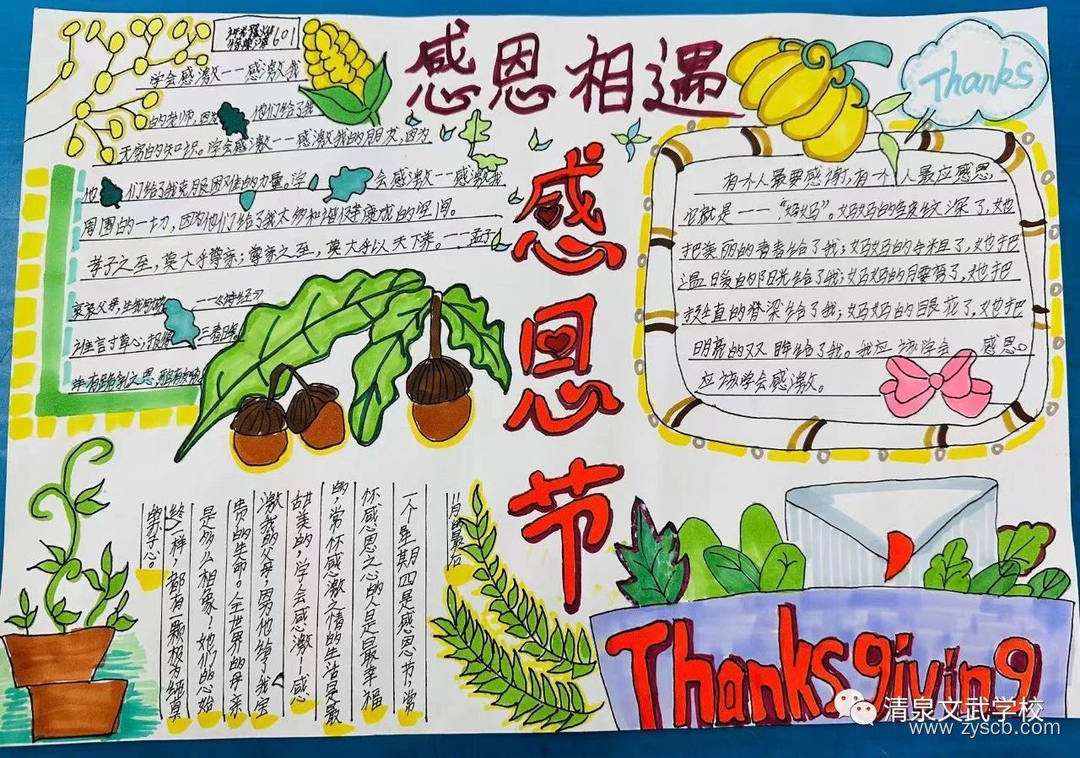 601
感恩相遇
Thanks
学会感激——感激我
的老师，因为 他们给了我
无穷的知识。学会感激——感激我的朋友，因为
他们给了我克服困难的力量。学 会感激——感激我
周围的一切，因为他们给了我太多和谐健康成的空间。
孝子之至，莫大乎尊亲；尊亲之至，莫大乎以天下养。——孟子
哀哀父母，生我劬劳 ——《诗经》
谁言寸草心；报 三春晖。
感恩节
有个人最要感谢，有个人最应感恩，
它就是——“妈妈”。妈妈的皱纹深了，她
把美丽的青春给了我；妈妈的手粗了，她把
温暖的阳光给了我；妈妈的腰弯了，她把
挺直的脊梁给了我；妈妈的眼花了，她把
明亮的双眸给了我。我应该学会 感恩。
应该学会感激。
月最后
一个星期四是感恩节，常
怀感恩之心的人是最幸福
的，常怀感激之情的生活是最
甜美的，学会感激！感
激我的父母，因为他给了我宝
贵的生命。全世界的母亲
是多么相象！她们的心始
终一样，都有一颗极为纯真
的赤子心。
Thanksgiving
清泉文武学校
www.zyscb.com